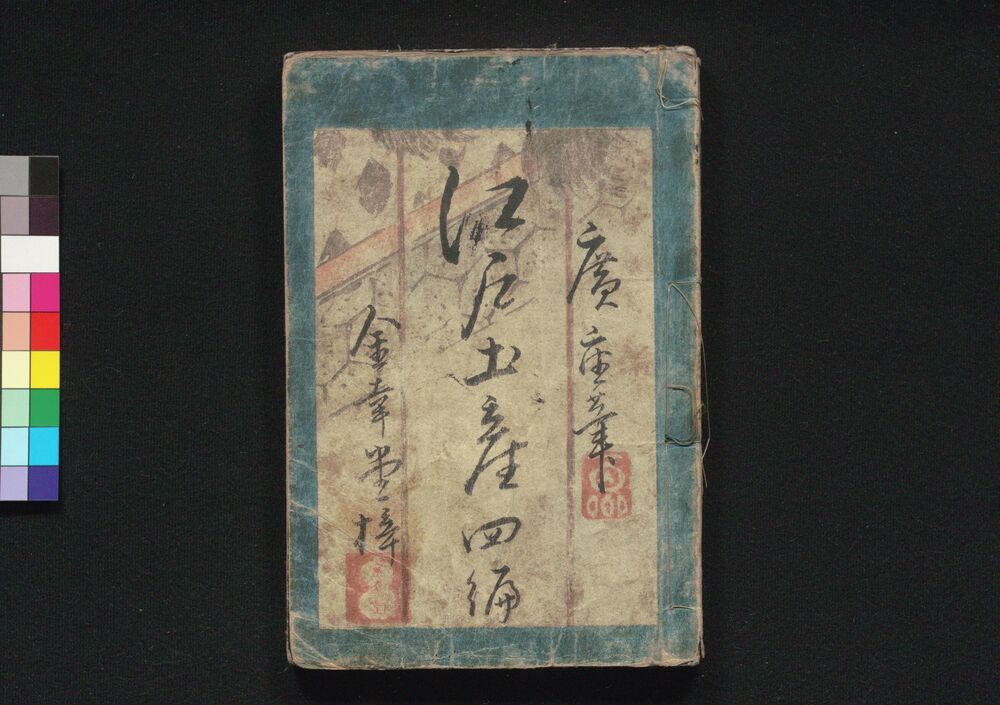 廣重筆
江戸土産四編
金幸堂梓